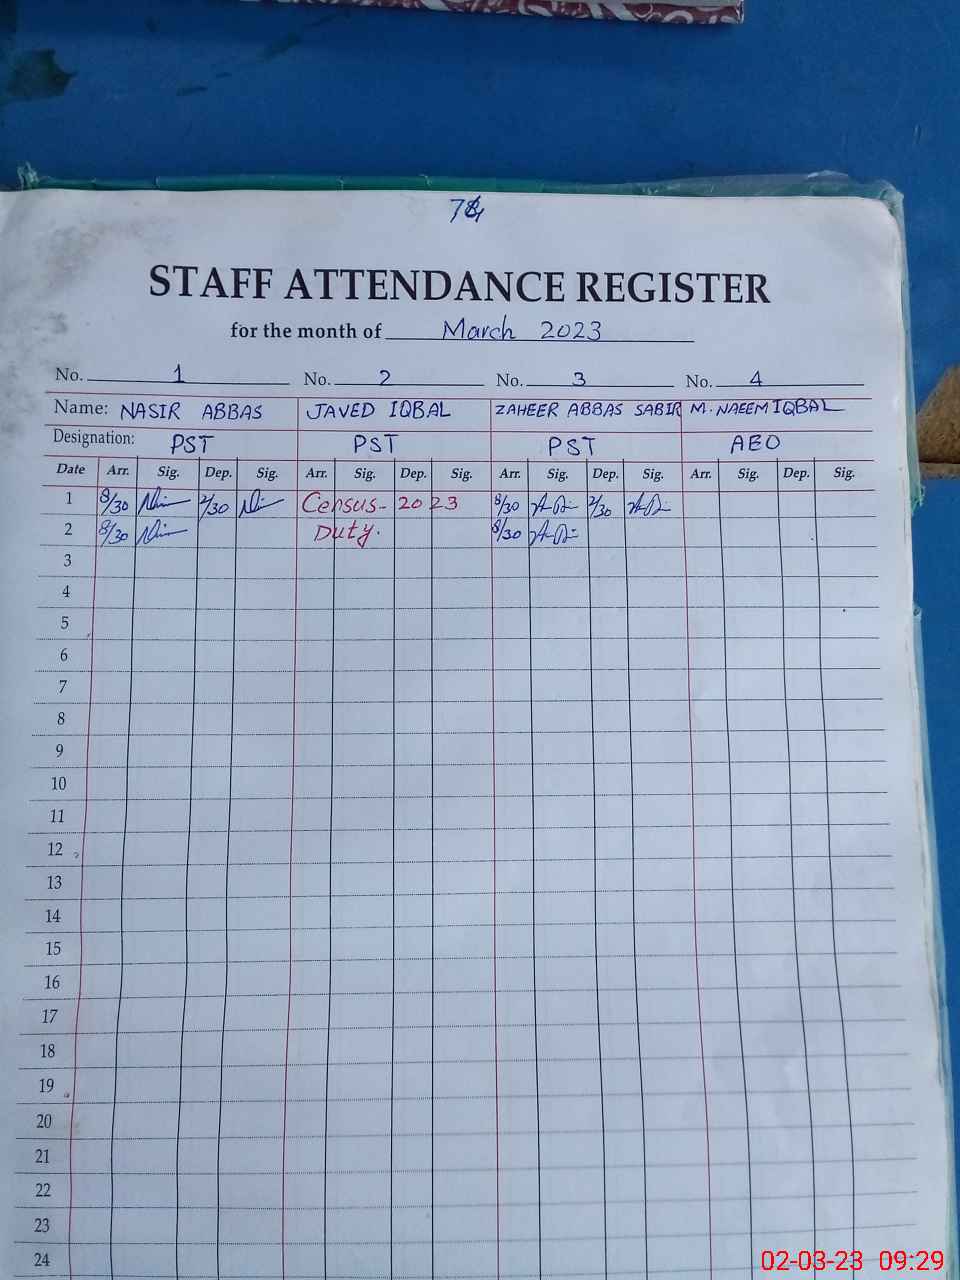 STAFF ATTENDANCE REGISTER
for the month of March 2023
No. 1 No. 2 No. 3 No. 4
Name: NASIR ABBAS JAVED IQBAL ZAHEER ABBAS SABIR M. NAEEM IQBAL
Designation: PST PST PST AEO
Date Arr. Sig. Dep. Sig. Arr. Sig. Dep. Sig. Arr. Sig. Dep. Sig. Arr. Sig. Dep. Sig.
1 8/30 2/30 Census-2023 8/30 2/30
2 8/30 Duty. 8/30
3
4
5
6
7
8
9
10
11
12
13
14
15
16
17
18
19
20
21
22
23
24
02-03-23 09:29